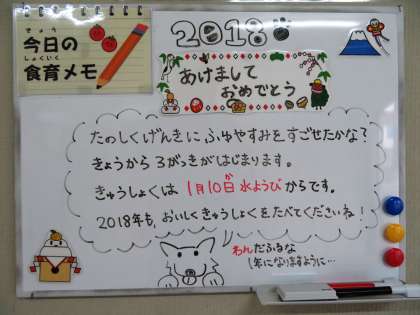 2018
きょう
今日の
しょくいく
食育メモ
あけまして
おめでとう
たのしくげんきにふゆやすみをすごせたかな？
きょうから3がっきがはじまります。
か
きゅうしょくは1月10日水ようびからです。
2018年も、おいしくきゅうしょくをたべてくださいね！
わんだふるな
1年になりますように…